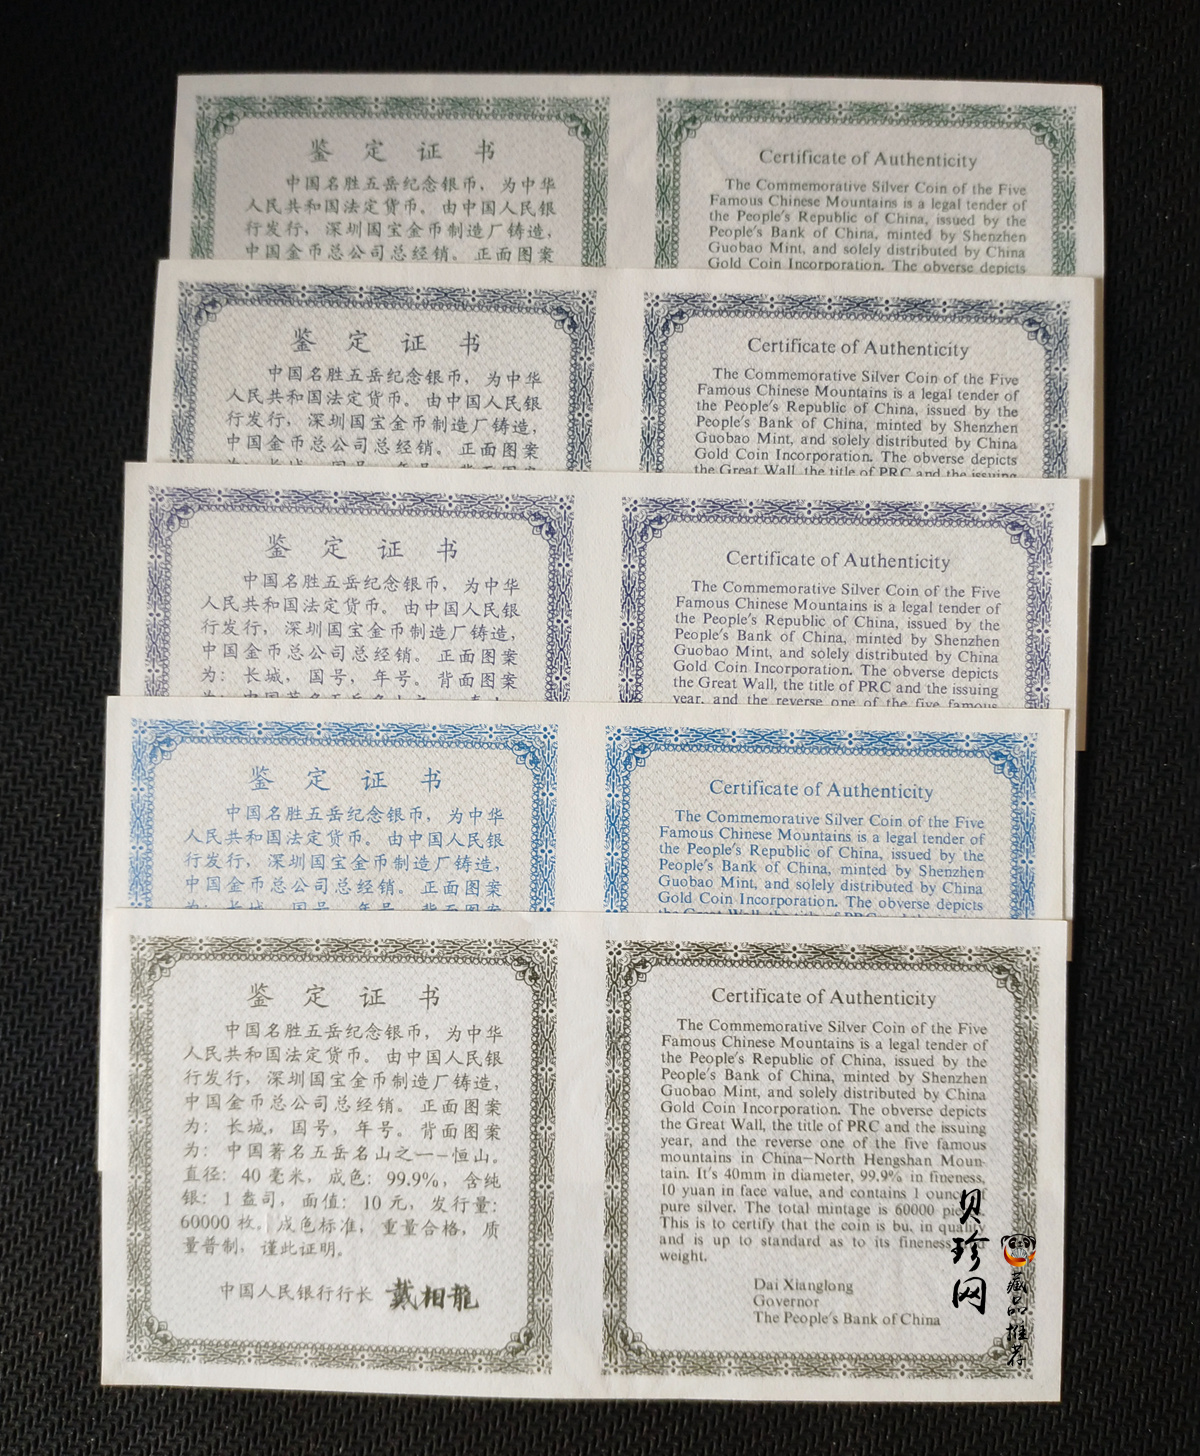 鉴定证书
中国名胜五岳纪念银币，为中华
人民共和国法定货币。由中国人民银
行发行，深圳国宝金币制造厂铸造，
中国金币总公司总经销。正面图案
Certificate of Authenticity
The Commemorative Silver Coin of the Five
Famous Chinese Mountains is a legal tender of
the People's Republic of China, issued by the
People's Bank of China, minted by Shenzhen
Guobao Mint, and solely distributed by China
Gold Coin Incorporation. The obverse depicts
鉴定证书
中国名胜五岳纪念银币，为中华
人民共和国法定货币。由中国人民银
行发行，深圳国宝金币制造厂铸造，
中国金币总公司总经销。正面图案
为：长城，国号，年号。背面图案
Certificate of Authenticity
The Commemorative Silver Coin of the Five
Famous Chinese Mountains is a legal tender of
the People's Republic of China, issued by the
People's Bank of China, minted by Shenzhen
Guobao Mint, and solely distributed by China
Gold Coin Incorporation. The obverse depicts
the Great Wall, the title of PRC and the issuing
鉴定证书
中国名胜五岳纪念银币，为中华
人民共和国法定货币。由中国人民银
行发行，深圳国宝金币制造厂铸造，
中国金币总公司总经销。正面图案
为：长城，国号，年号。背面图案
为：中国著名五岳名山之一--泰山
Certificate of Authenticity
The Commemorative Silver Coin of the Five
Famous Chinese Mountains is a legal tender of
the People's Republic of China, issued by the
People's Bank of China, minted by Shenzhen
Guobao Mint, and solely distributed by China
Gold Coin Incorporation. The obverse depicts
the Great Wall, the title of PRC and the issuing
year, and the reverse one of the five famous
鉴定证书
中国名胜五岳纪念银币，为中华
人民共和国法定货币。由中国人民银
行发行，深圳国宝金币制造厂铸造，
中国金币总公司总经销。正面图案
为：长城，国号，年号。背面图案
Certificate of Authenticity
The Commemorative Silver Coin of the Five
Famous Chinese Mountains is a legal tender of
the People's Republic of China, issued by the
People's Bank of China, minted by Shenzhen
Guobao Mint, and solely distributed by China
Gold Coin Incorporation. The obverse depicts
the Great Wall, the title of PRC
鉴定证书
中国名胜五岳纪念银币，为中华
人民共和国法定货币。由中国人民银
行发行，深圳国宝金币制造厂铸造，
中国金币总公司总经销。正面图案
为：长城，国号，年号。背面图案
为：中国著名五岳名山之一--恒山。
直径：40毫米，成色：99.9%，含纯
银：1盎司，面值：10元，发行量：
60000枚。成色标准，重量合格，质
量普制，谨此证明。
中国人民银行行长 戴相龍
Certificate of Authenticity
The Commemorative Silver Coin of the Five
Famous Chinese Mountains is a legal tender of
the People's Republic of China, issued by the
People's Bank of China, minted by Shenzhen
Guobao Mint, and solely distributed by China
Gold Coin Incorporation. The obverse depicts
the Great Wall, the title of PRC and the issuing
year, and the reverse one of the five famous
mountains in China—North Hengshan Moun-
tain. It's 40mm in diameter, 99.9% in fineness,
10 yuan in face value, and contains 1 ounce
pure silver. The total mintage is 60000
This is to certify that the coin is bu, in quality
and is up to standard as to its fineness
weight.
Dai Xianglong
Governor
The People's Bank of China
贝珍网
藏品推荐